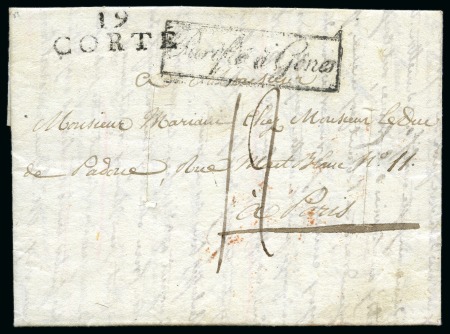 19
CORTE
Purifié à Gênes
à Monsieur
Monsieur Mariani chez Monsieur le Duc
de Padoue, Rue Mont Blanc N° 11.
à Paris